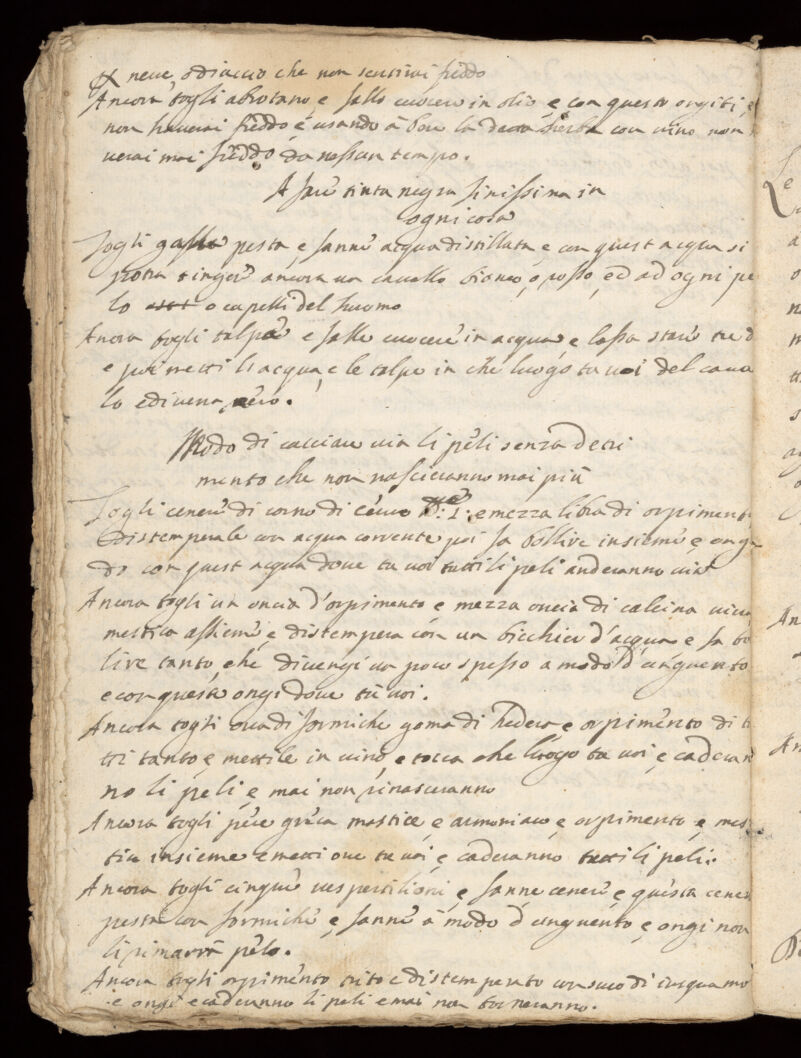 neve, o diaccio che non sentirai freddo
Ancora togli abrotano e fallo cuocere in olio, e con questo ongiti, e
non haverai freddo e usando à bere la detta herba con vino non
verai mai freddo da nessun tempo.
A fare tinta negra finissima in
ogni cosa
Togli galle pesta, e fanne acqua distillata e con quest acqua si
potra tingere ancora un cavallo bianco, o rosso, ed ad ogni pe
lo o capelli del huomo
Ancora togli talpe e falle cuocere in acqua, e lassa stare tre d
e poi metti l'acqua, e le talpe in che luogo tu voi del cava
lo e divena nero.
Modo di cacciare via li peli senza detri
mento che non nascieranno mai più
Togli cenere di corno di cervo 1: e mezza libra di orpimento
e distemperale con acqua corrente poi fa bollire insieme e onge
do con quest acqua dove tu voi tutti li peli anderanno via
Ancora togli un oncia d'orpimento e mezza oncia di calcina viva
mestica assieme, e distempera con un bicchier d'acqua e fa bo
lire tanto, che divengi un poco spesso a modo d'unguento
e con questo ongi dove tu voi.
Ancora togli ova di formiche goma di hedera e orpimento di t
tti tanto, e mettile in vino, e tocca che luogo tu voi, e caderan
no li peli, e mai non rinasceranno
Ancora togli pece greca mastice, e armoniaco, e orpimento, e mes
tica insieme e metti ove tu voi, e caderanno tutti li peli.
Ancora togli cinque vespertilioni, e fanne cenere, e questa cenere
pesta con formiche, e fanne à modo d'unguento, e ongi non
li rimarrà pelo.
Ancora togli orpimento trito e distemperato con suco di iusquamo
e ongi e caderanno li peli e mai non torneranno.